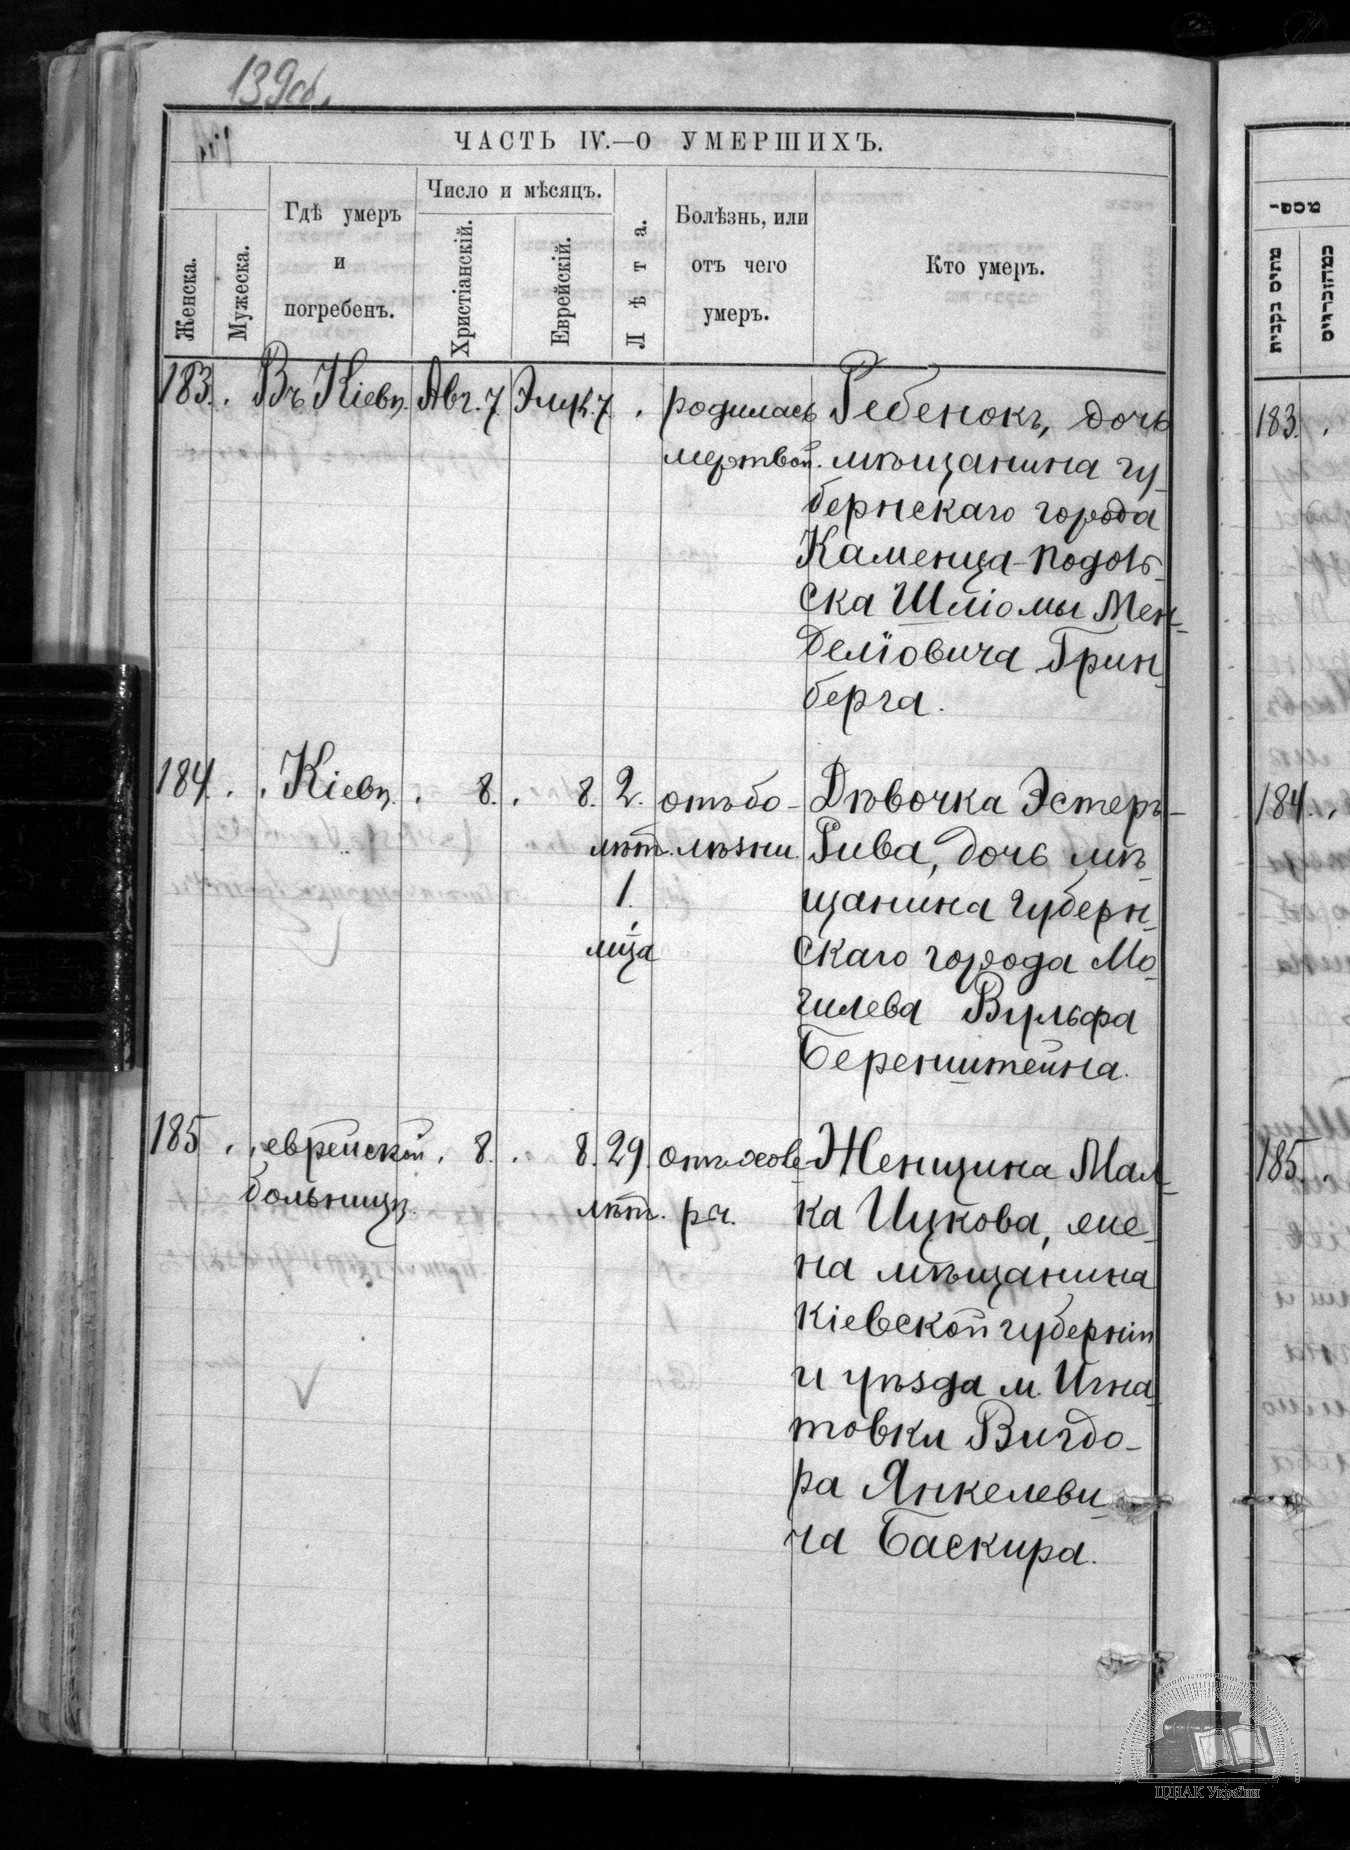 139 об.
ЧАСТЬ IV.—О УМЕРШИХЪ.
Женска.
Мужеска.
Гдѣ умеръ
и
погребенъ.
Число и мѣсяцъ.
Христіанскій.
Еврейскій.
Лѣта.
Болѣзнь, или
отъ чего
умеръ.
Кто умеръ.
183. Въ Кіевѣ. Авг. 7. Элул. 7. родилась Ребенокъ, дочь
мертвой. мѣщанина гу-
бернскаго города
Каменца-Подоль-
ска Шліомы Мен-
деліовича Грин-
берга.
184. Кіевѣ. 8. 8. 2. отъ бо- Дѣвочка Эстеръ-
лѣт. лѣзни. Рива, дочь мѣ-
1. щанина губерн-
мца скаго города Мо-
гилева Вульфа
Беренштейна.
185 еврейской 8. 8. 29. отъ холе- Женщина Мал-
больницѣ. лѣт. ры. ка Ицкова, же-
на мѣщанина
Кіевской губерніи
и уѣзда м. Игна-
товки Вигдо-
ра Янкелеви-
ча Баскира.
183.
184.
185.
ЦДІАК України